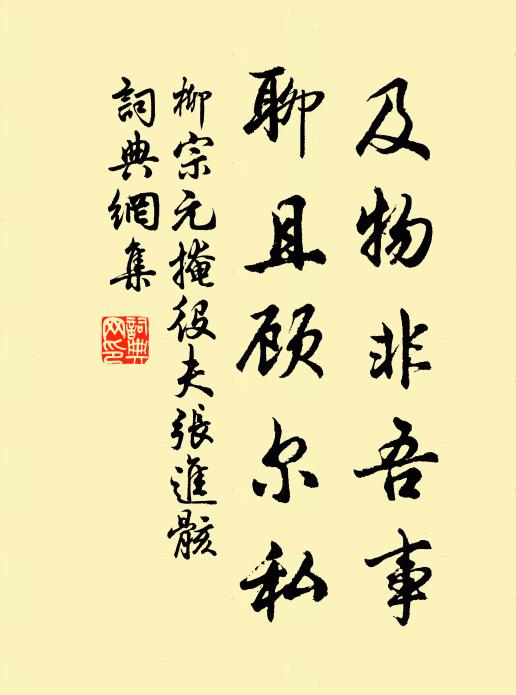 及物非吾事
聊且顾尔私
柳宗元掩役夫張進骸
詞典網集
詞典網印